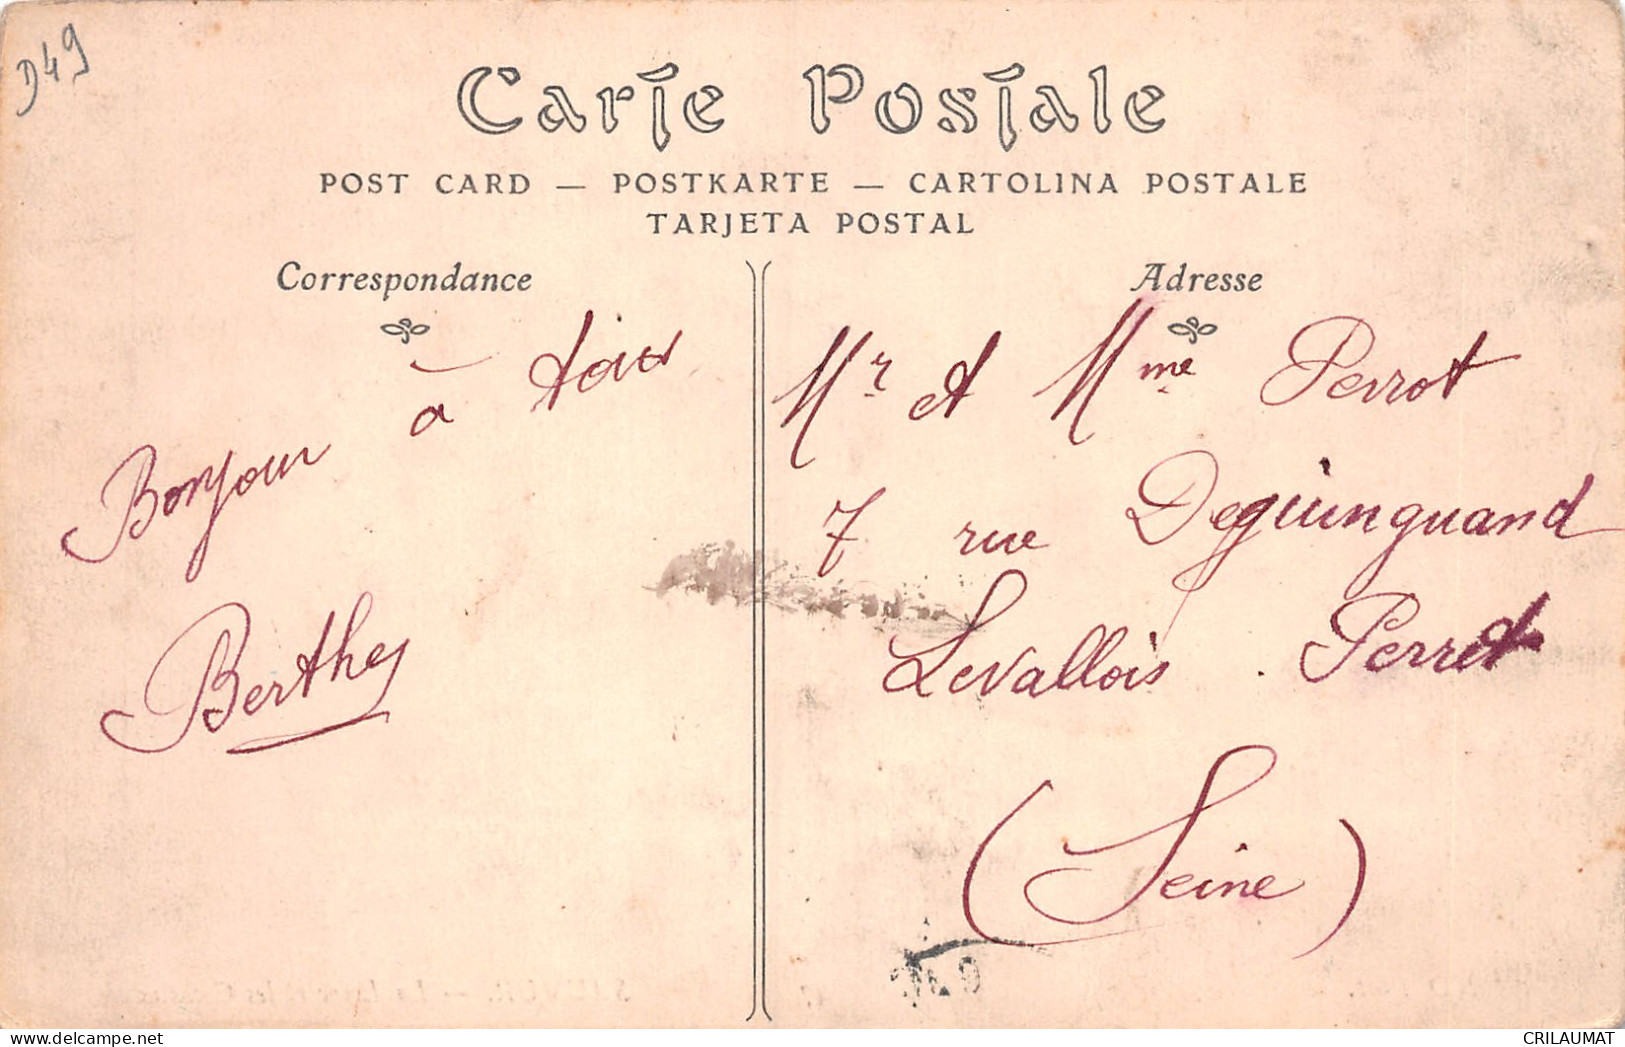 D49
Carte Postale
POST CARD — POSTKARTE — CARTOLINA POSTALE
TARJETA POSTAL
Correspondance
Bonjour à tous
Berthe
Adresse
Mr et Mme Perrot
7 rue Deguinguand
Levallois . Perret
(Seine)
CRILAUMAT